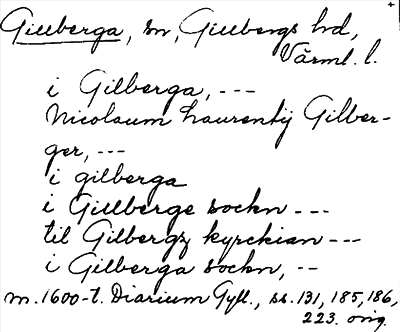 Gillberga, sn, Gillbergs hd,
Värml. l.
i Gilberga, ---
Nicolaum Laurentij Gilber-
ger, ---
i gilberga
i Gillberge sockn ---
til Gilbergz kyrckian ---
i Gilberga sockn, --
m. 1600-t. Diarium Gyll., ss. 131, 185, 186,
223. orig.